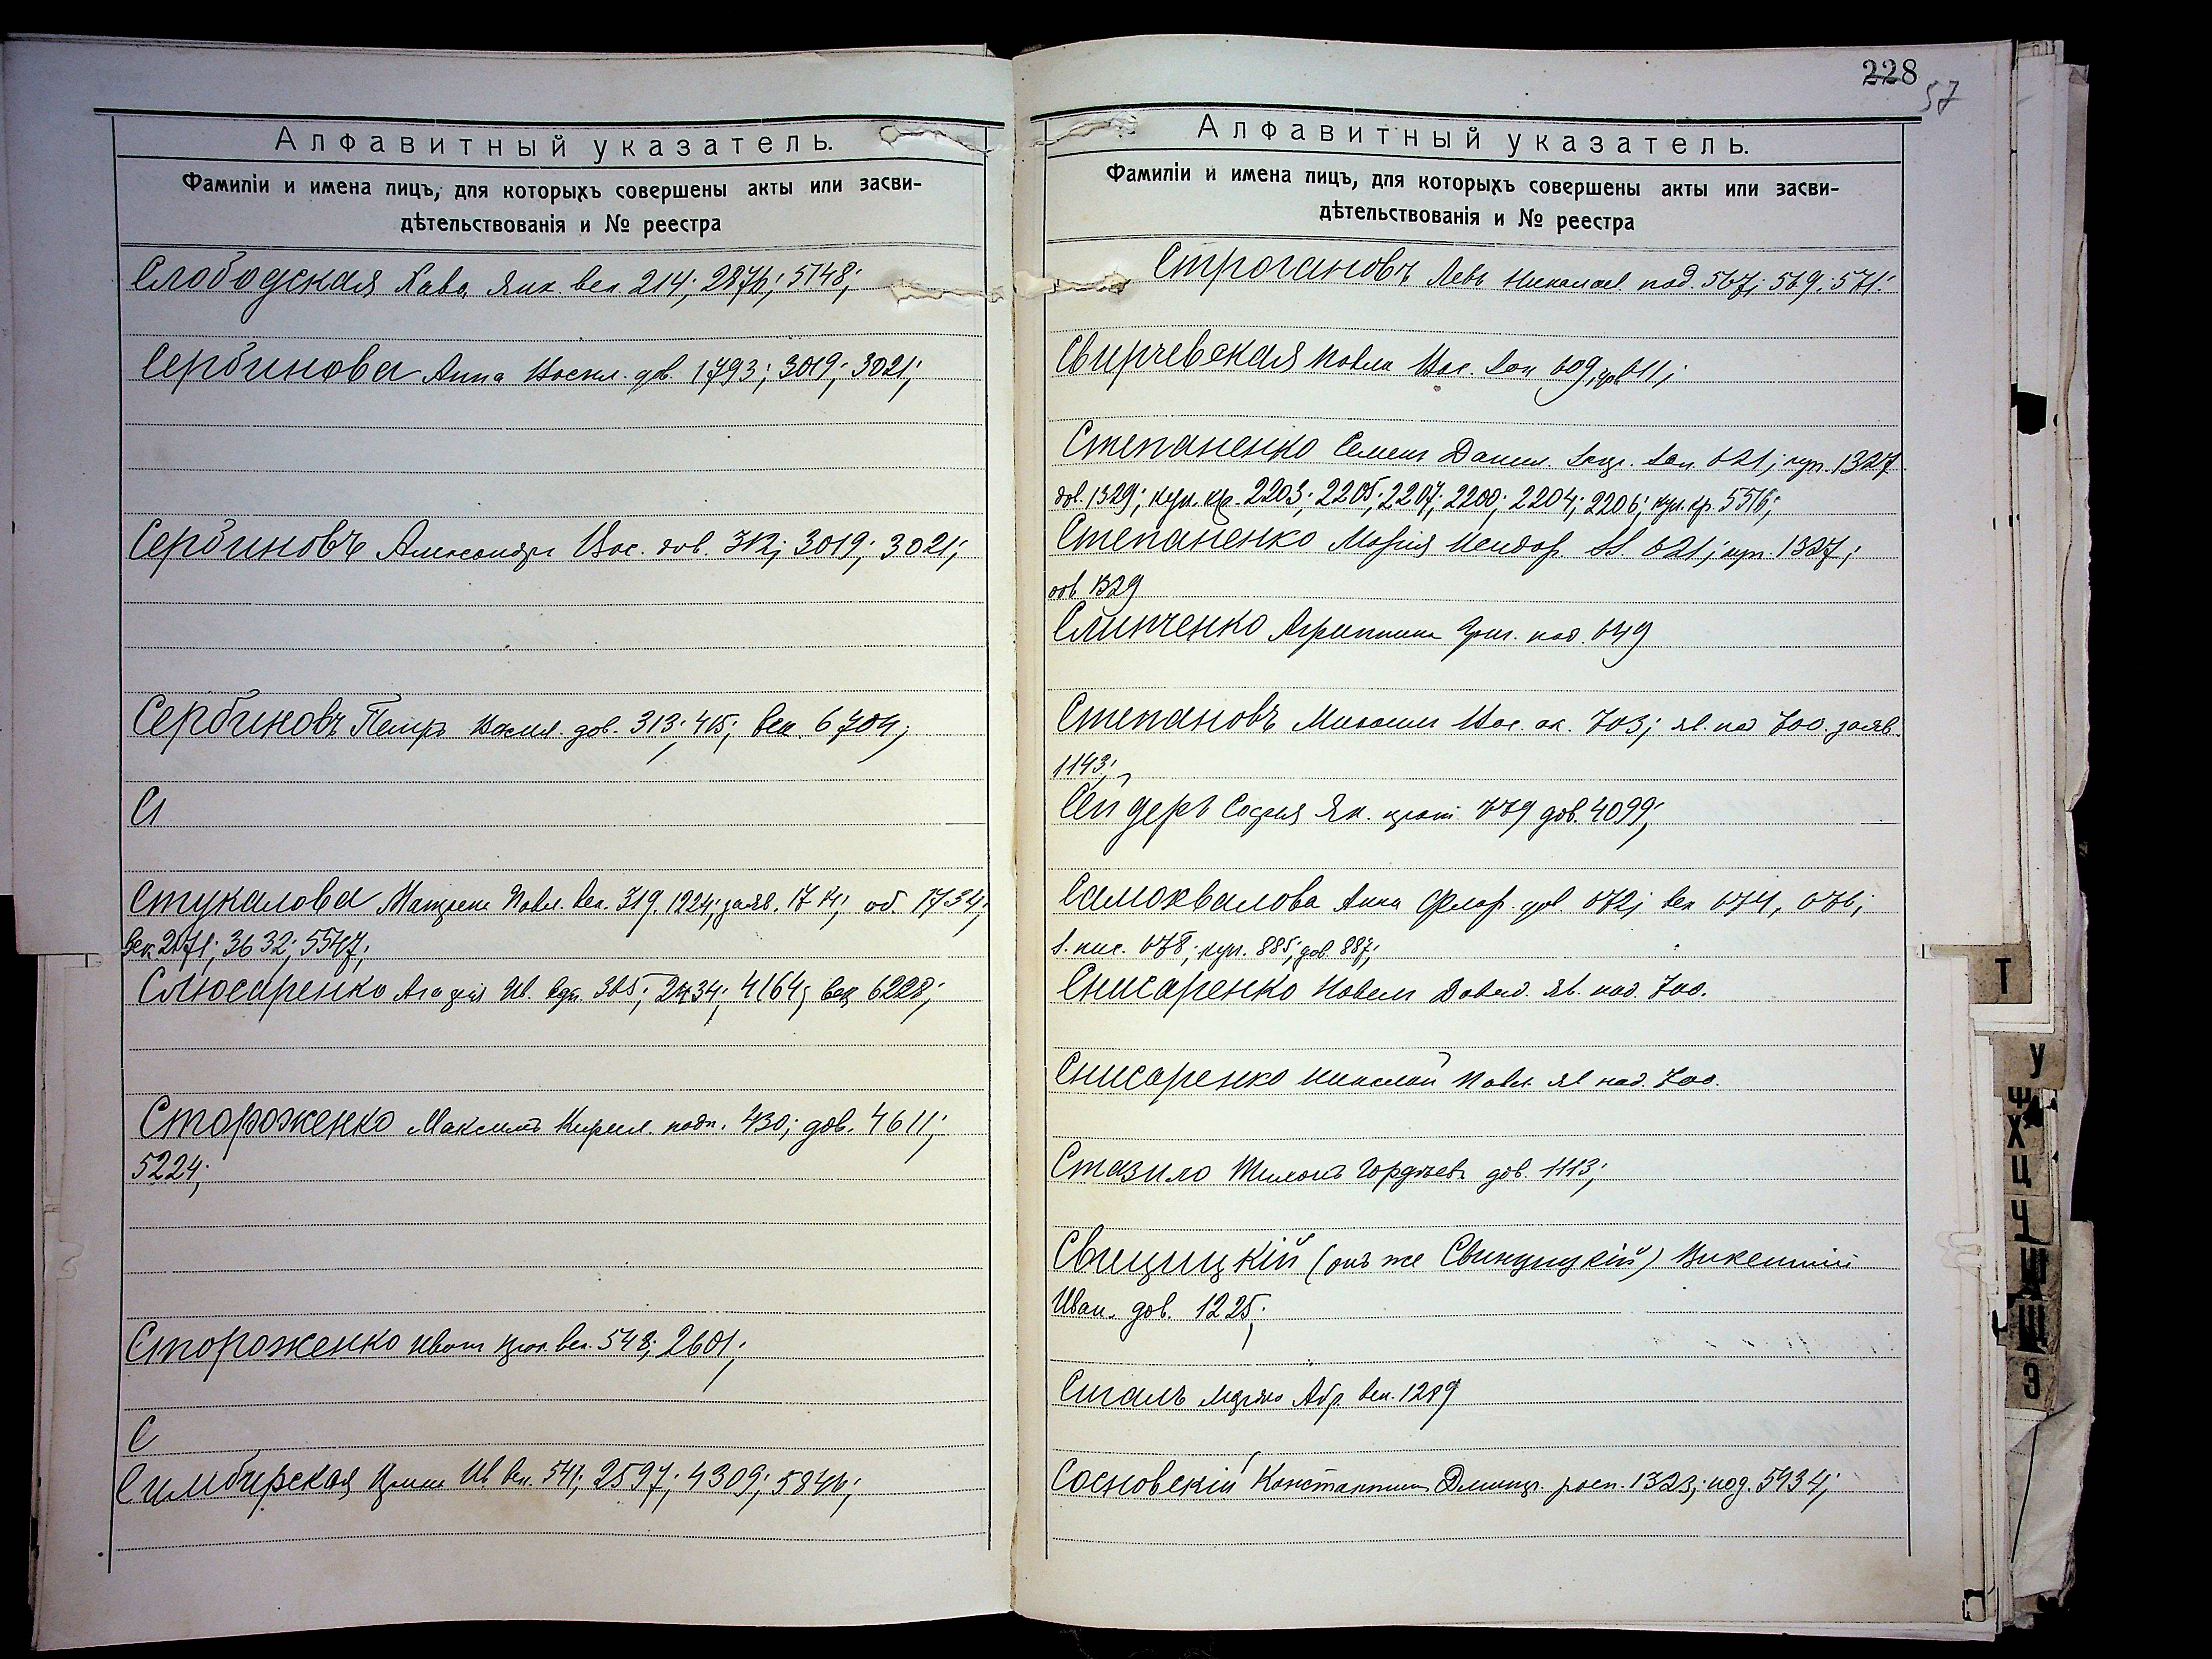 Алфавитный указатель.
Фамиліи и имена лицъ, для которыхъ совершены акты или засви-
дѣтельствованія и № реестра
Слободская Хава Янк. век 214; 2876; 5148;
Сербинова Анна Васил. дов. 1793; 3019; 3021;
Сербиновъ Александръ Вас. дов. 312; 3019; 3021;
Сербиновъ Петръ Васил. дов. 313; 415; век. 6704;
Стукалова Матрена Павл. век. 319. 1224; заяв. об. 1734;
век 3632; 5547;
Слюсаренко Ив. 4164; век 6228;
Стороженко Максимъ Кирил. подп. 430; дов. 4611;
5224;
Стороженко Иванъ век. 548; 2601;
С
Симбирская Ив век. 541; 2597; 4309; 5846;
228
57
Алфавитный указатель.
Фамиліи и имена лицъ, для которыхъ совершены акты или засви-
дѣтельствованія и № реестра
Строгановъ Левъ Николаев под. 567; 569; 571;
Свирчевская Павла Вас. 609; 611;
Степаненко Семенъ Данил. 621; куп. 1327
дов. 1329; куп. кр. 2203; 2205; 2207; 2200; 2204; 2206; куп. кр. 5516;
Степаненко Марія Исидор. 621; куп. 1327;
дов 1329
Слипченко Агриппина Григ. под. 649
Степановъ Михаилъ Вас. 703; яв. под 700. заяв.
1143;
Сейдеръ София Як. дов. 4099;
Самохвалова Анна Флор. дов. 672; век 674, 676;
678; куп. 885; дов. 887;
Снисаренко Павелъ Давид. яв. под. 700.
Снисаренко Николай Павл. яв под. 700.
Стазило Гордѣев. дов. 1113;
Свещицкій (онъ же Свинцицкій) Викентій
Иван. дов. 1225;
Сигалъ Абр. век. 1289
Сосновскій Константинъ Дмитр. росп. 1323; под. 5934;
Т
У
Ф
Х
Ц
Ч
Ш
Щ
Э